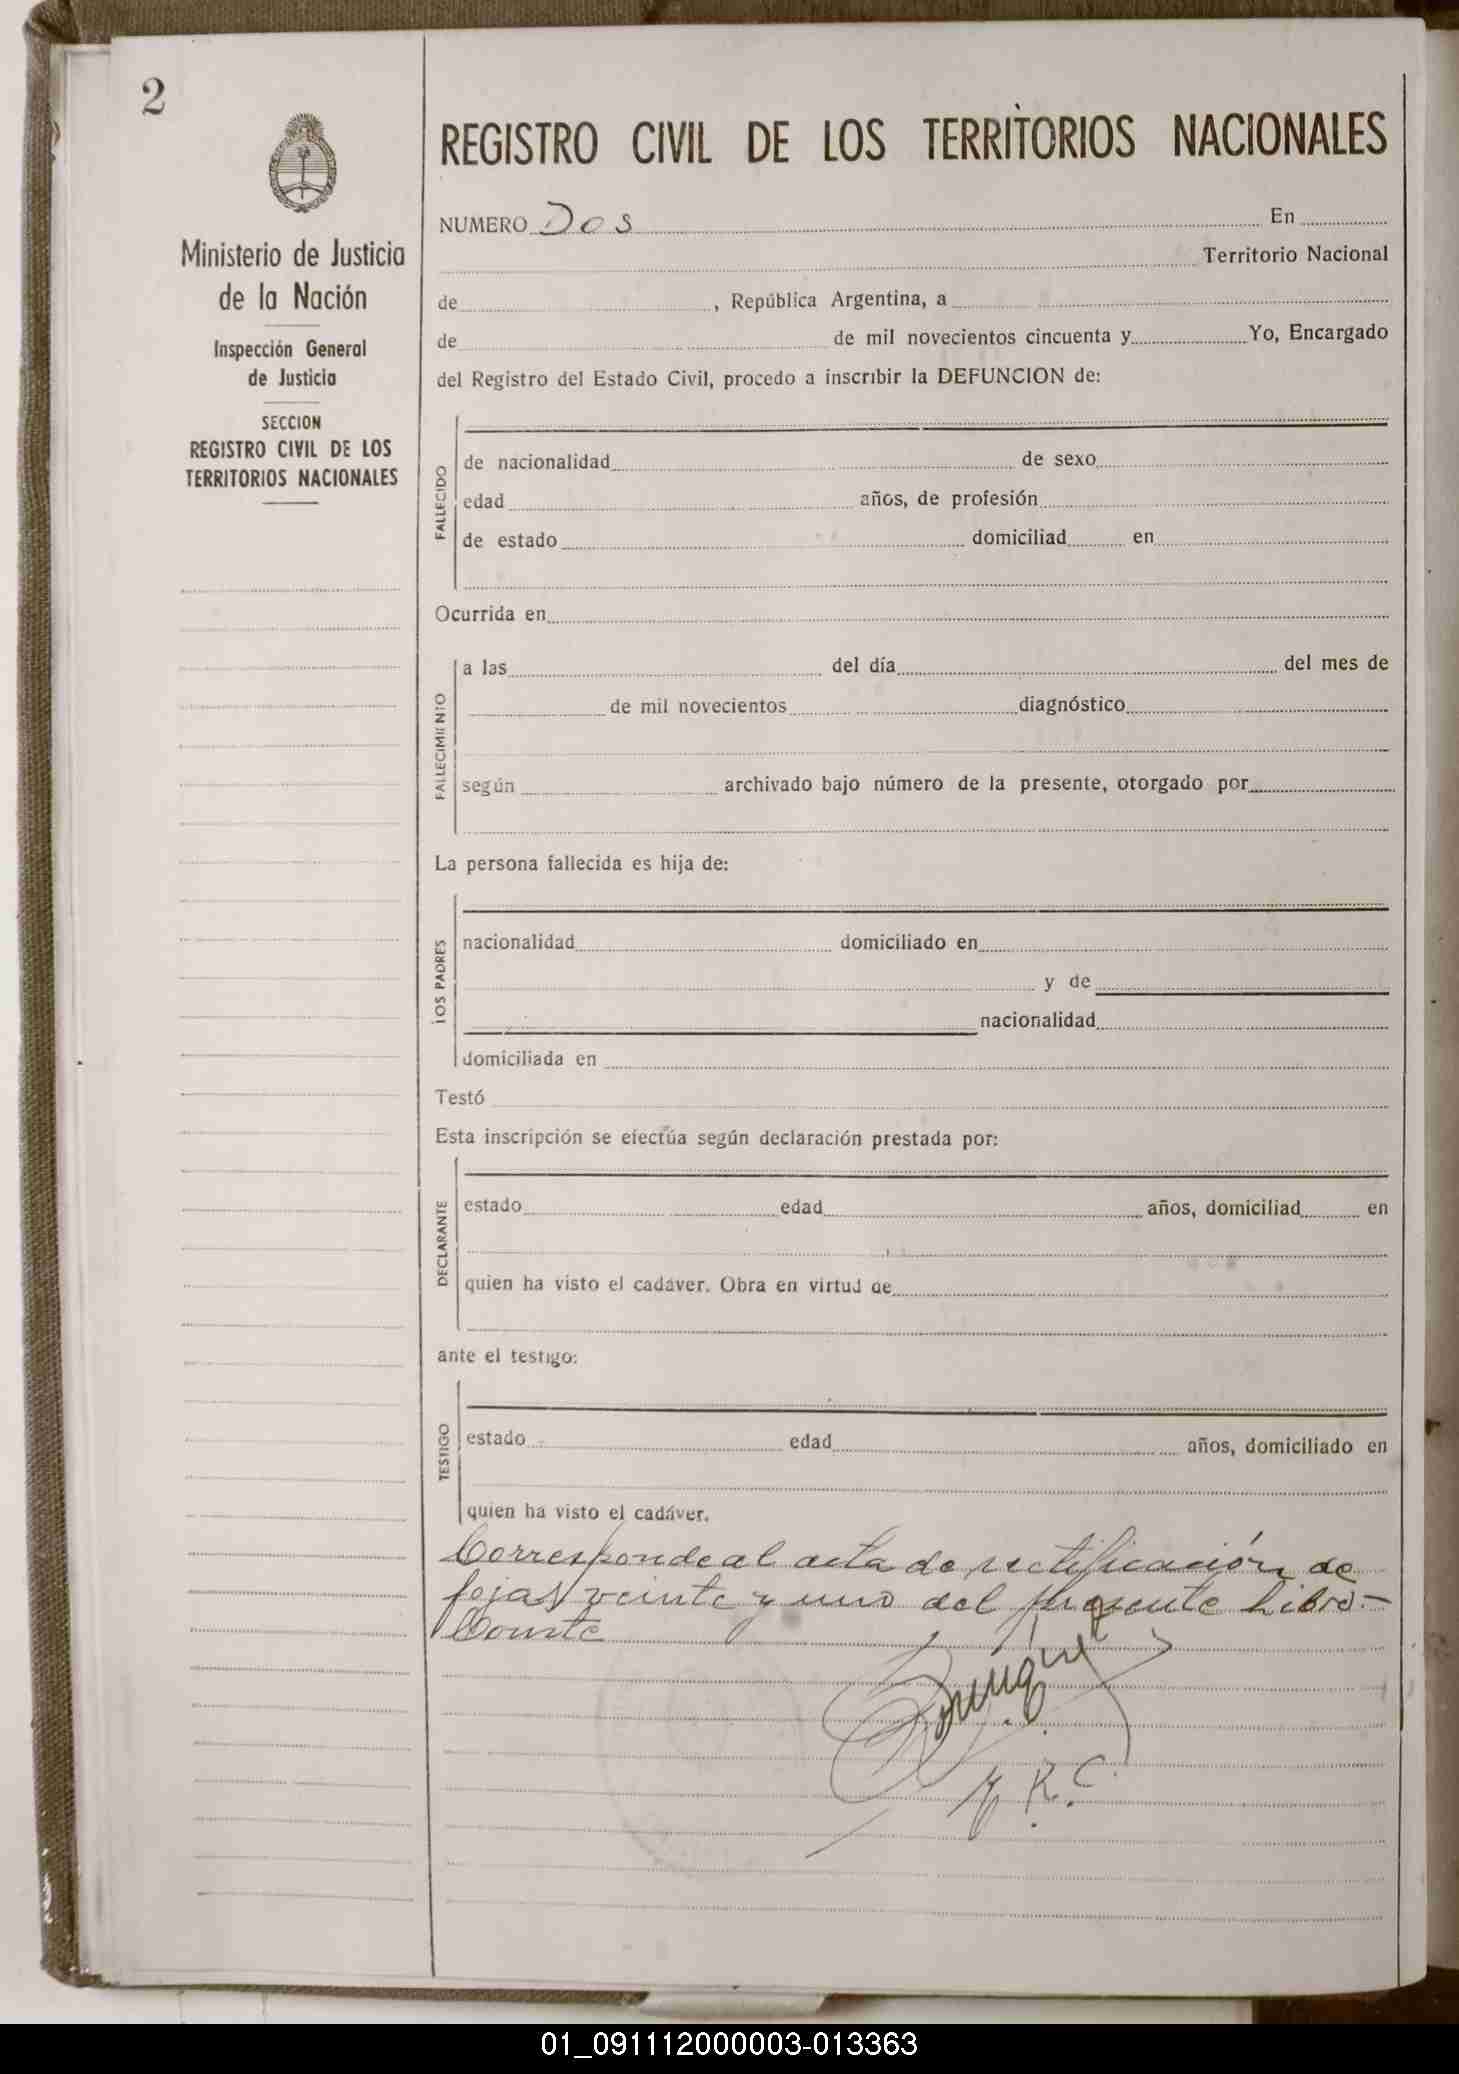 2
Ministerio de Justicia
de la Nación
Inspección General
de Justicia
SECCION
REGISTRO CIVIL DE LOS
TERRITORIOS NACIONALES
REGISTRO CIVIL DE LOS TERRITORIOS NACIONALES
NUMERO Dos En
Territorio Nacional
de , República Argentina, a
de de mil novecientos cincuenta y Yo, Encargado
del Registro del Estado Civil, procedo a inscribir la DEFUNCION de:
FALLECIDO
de nacionalidad de sexo
edad años, de profesión
de estado domiciliad en
Ocurrida en
FALLECIMIENTO
a las del día del mes de
de mil novecientos diagnóstico
según archivado bajo número de la presente, otorgado por
La persona fallecida es hija de:
LOS PADRES
nacionalidad domiciliado en
y de
nacionalidad
domiciliada en
Testó
Esta inscripción se efectúa según declaración prestada por:
DECLARANTE
estado edad años, domiciliad en
quien ha visto el cadáver. Obra en virtud de
ante el testigo:
TESTIGO
estado edad años, domiciliado en
quien ha visto el cadáver.
Corresponde al acta de rectificación de
fojas veinte y uno del presente libro.-
Conste
R.C.
01_091112000003-013363